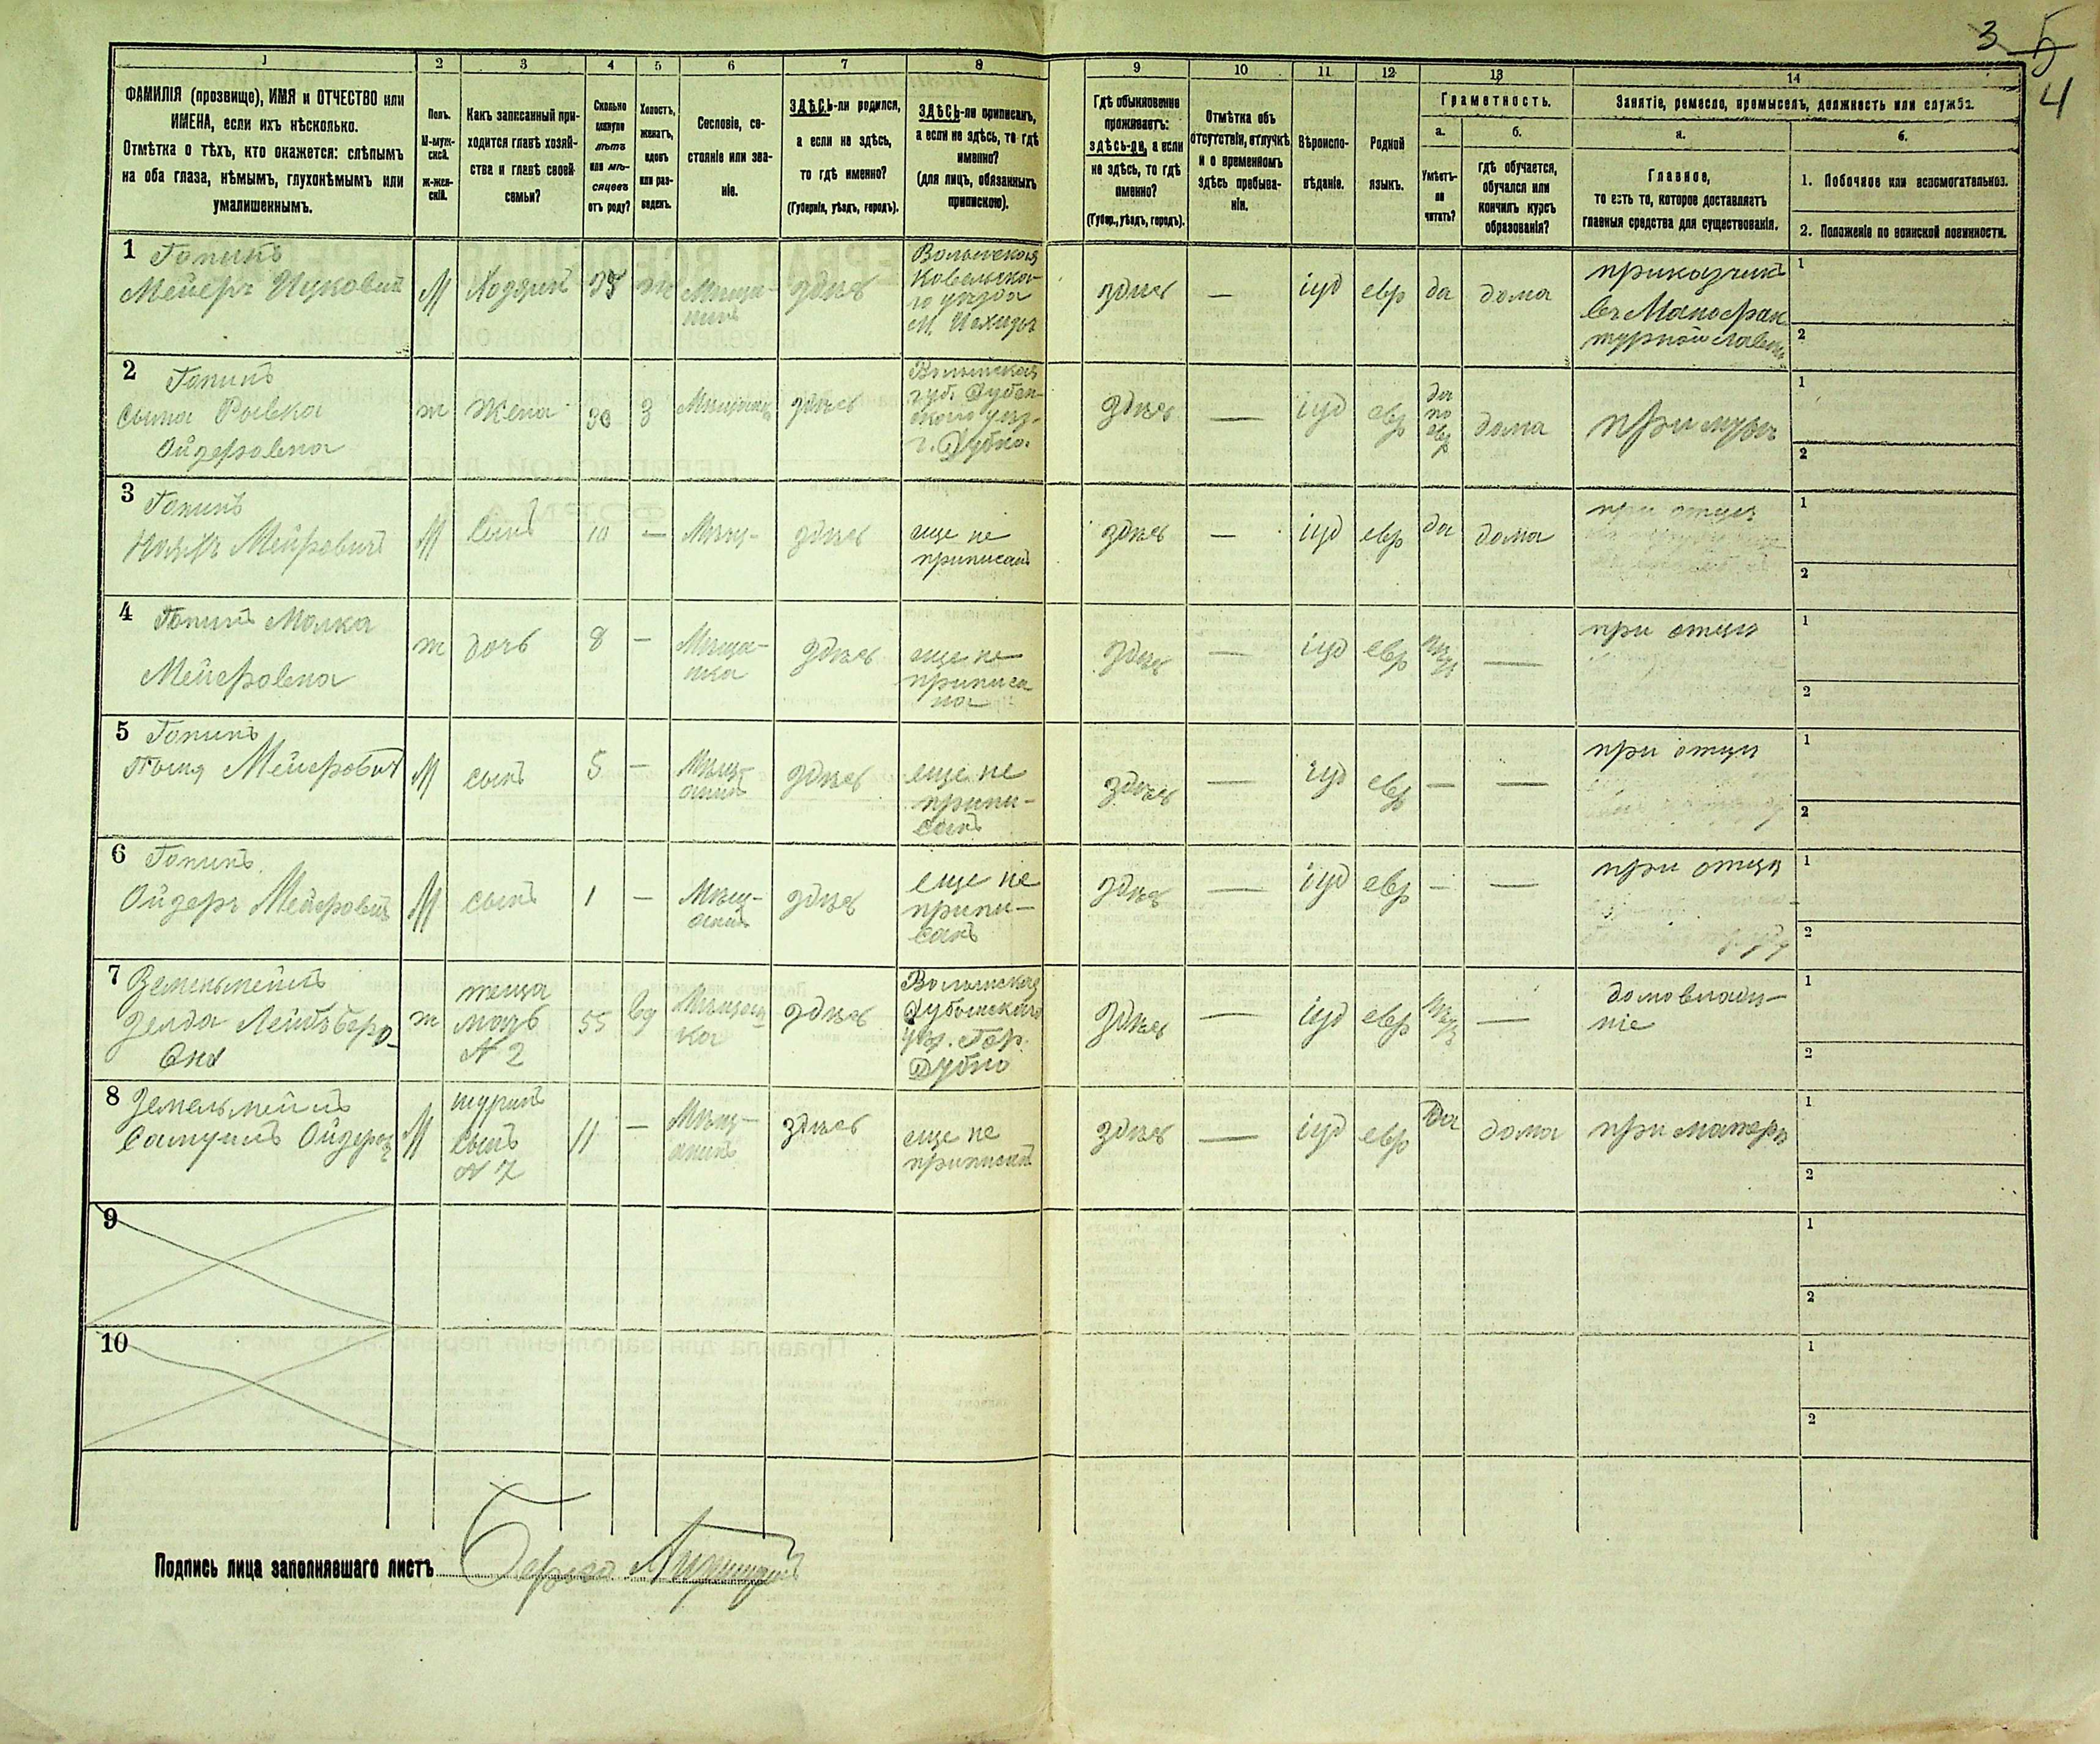 3 5
4
1
ФАМИЛІЯ (прозвище), ИМЯ и ОТЧЕСТВО или
ИМЕНА, если ихъ нѣсколько.
Отмѣтка о тѣхъ, кто окажется: слѣпымъ
на оба глаза, нѣмымъ, глухонѣмымъ или
умалишеннымъ.
2
Полъ.
М-муж-
ской.
ж-жен-
скій.
3
Какъ записанный при-
ходится главѣ хозяй-
ства и главѣ своей
семьи?
4
Сколько
минуло
лѣтъ
или мѣ-
сяцевъ
отъ роду?
5
Холостъ,
женатъ,
вдовъ
или раз-
веденъ.
6
Сословіе, со-
стояніе или зва-
ніе.
7
ЗДѢСЬ-ли родился,
а если не здѣсь,
то гдѣ именно?
(Губернія, уѣздъ, городъ).
8
ЗДѢСЬ-ли приписанъ,
а если не здѣсь, то гдѣ
именно?
(для лицъ, обязанныхъ
припискою).
9
Гдѣ обыкновенно
проживаетъ:
здѣсь-ли, а если
не здѣсь, то гдѣ
именно?
(Губер., уѣздъ, городъ).
10
Отмѣтка объ
отсутствіи, отлучкѣ
и о временномъ
здѣсь пребыва-
ніи.
11
Вѣроиспо-
вѣданіе.
12
Родной
языкъ.
13
Грамотность.
а.
Умѣетъ-
ли
читать?
б.
гдѣ обучается,
обучался или
кончилъ курсъ
образованія?
14
Занятіе, ремесло, промыселъ, должность или служба.
а.
Главное,
то есть то, которое доставляетъ
главныя средства для существованія.
б.
1. Побочное или вспомогательное.
2. Положеніе по воинской повинности.
1
Мейеръ Ицковичъ
М
Хозяинъ
Мѣща-
нинъ
здѣсь
Волынская
Ковельска-
го уѣзда
М.
здѣсь
—
іуд
евр
да
дома
приказчикъ
въ Мануфак
турной лавкѣ
1
2
2
Ривка
Ойзеровна
ж
Жена
30
З
здѣсь
Волынская
губ. Дубен-
скаго уѣз.
г. Дубно.
здѣсь
—
іуд
евр
да
по
евр
дома
при мужѣ
1
2
3
Мейровичъ
М
Сынъ
10
—
Мѣщ-
здѣсь
еще не
приписанъ
здѣсь
—
іуд
евр
да
дома
при отцѣ
1
2
4
Малка
Мейеровна
ж
дочь
8
—
Мѣща-
нка
здѣсь
еще не
приписа
на
здѣсь
—
іуд
евр
нѣтъ
—
при отцѣ
1
2
5
Мейеровичъ
М
сынъ
5
—
Мѣщ-
анинъ
здѣсь
еще не
припи-
санъ
здѣсь
—
іуд
евр
—
—
при отцѣ
1
2
6
Ойзеръ Мейеровичъ
М
сынъ
1
—
Мѣщ-
анинъ
здѣсь
еще не
припи-
санъ
здѣсь
—
іуд
евр
—
—
при отцѣ
1
2
7
Зельда Лейбъ Беро-
вна
ж
теща
мать
N 2
55
вд
Мѣщан
ка
здѣсь
Волынская
Дубенскаго
уѣз. Гор.
Дубно
здѣсь
—
іуд
евр
нѣтъ
—
домовладѣ-
ніе
1
2
8
М
шуринъ
сынъ
N 7
11
—
Мѣщ-
анинъ
здѣсь
еще не
приписанъ
здѣсь
—
іуд
евр
да
дома
при матери
1
2
9
1
2
10
1
2
Подпись лица заполнявшаго листъ